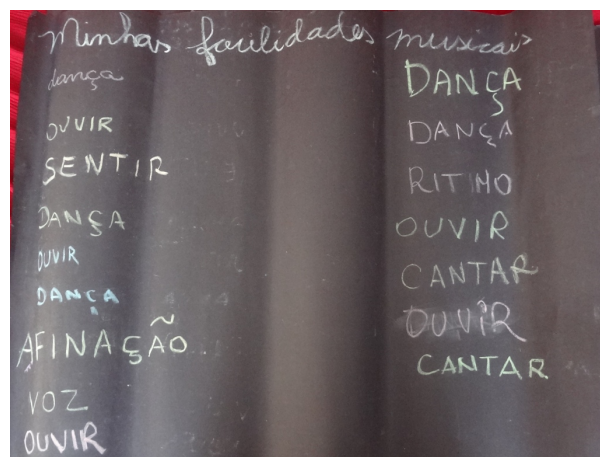 Minhas faculidades musicais
dança
OUVIR
SENTIR
DANÇA
OUVIR
DANÇA
AFINAÇÃO
VOZ
OUVIR
DANÇA
DANÇA
RITIMO
OUVIR
CANTAR
OUVIR
CANTAR